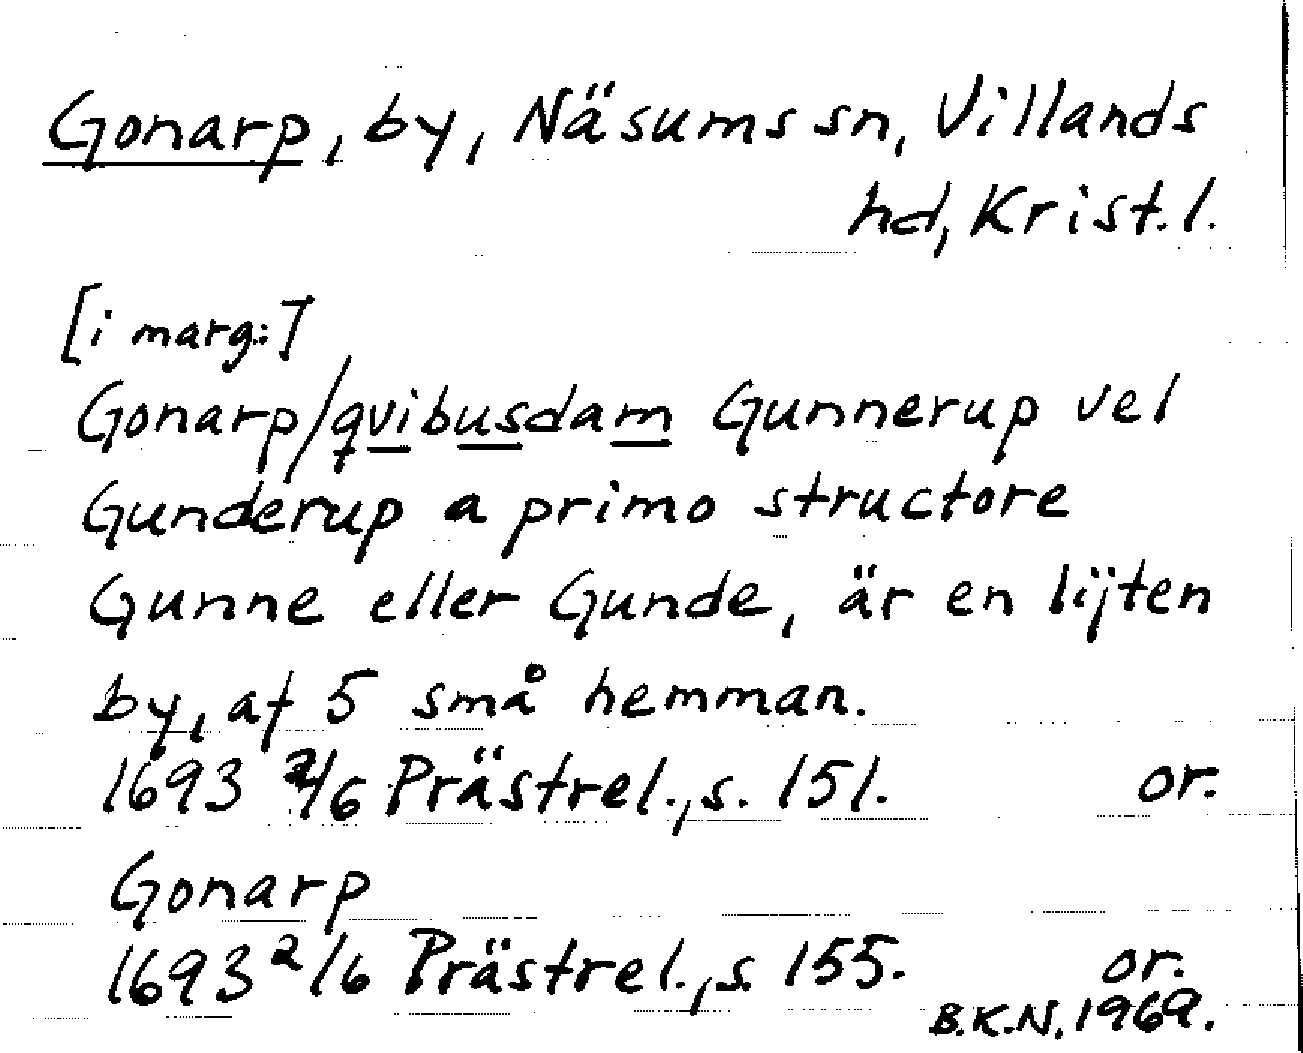 Gonarp, by, Näsums sn, Villands
hd, Krist. l.
[i marg:]
Gonarp/qvibusdam Gunnerup vel
Gunderup a primo structore
Gunne eller Gunde, är en lÿten
by, af 5 små hemman.
1693 2/6 Prästrel., s. 151. or.
Gonarp
1693 2/6 Prästrel., s. 155. or.
B.K.N. 1969.